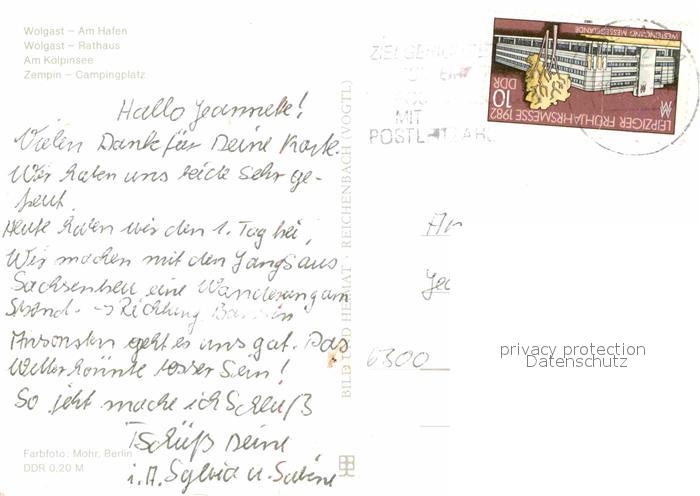 Wolgast – Am Hafen
Wolgast – Rathaus
Am Kölpinsee
Zempin – Campingplatz
Hallo Jeannette!
Vielen Dank für Deine Karte.
Wir haben uns beide sehr ge-
freut.
Heute haben wir den 1. Tag frei,
Wir machen mit den Jungs aus
Sachsen eine Wanderung am
Strand. → Richtung Bansin
Ansonsten geht es uns gut. Das
Wetter könnte besser sein!
So jetzt mache ich Schluß
Tschüß Deine
i.A. Sylvia u. Sabine
Farbfoto: Mohr, Berlin
DDR 0,20 M
BILD UND HEIMAT · REICHENBACH (VOGTL)
WESTEINGANG MESSEGELÄNDE
10
DDR
LEIPZIGER FRÜHJAHRSMESSE 1982
MIT
POSTLEITZAHL
An
Jea
6300
privacy protection
Datenschutz